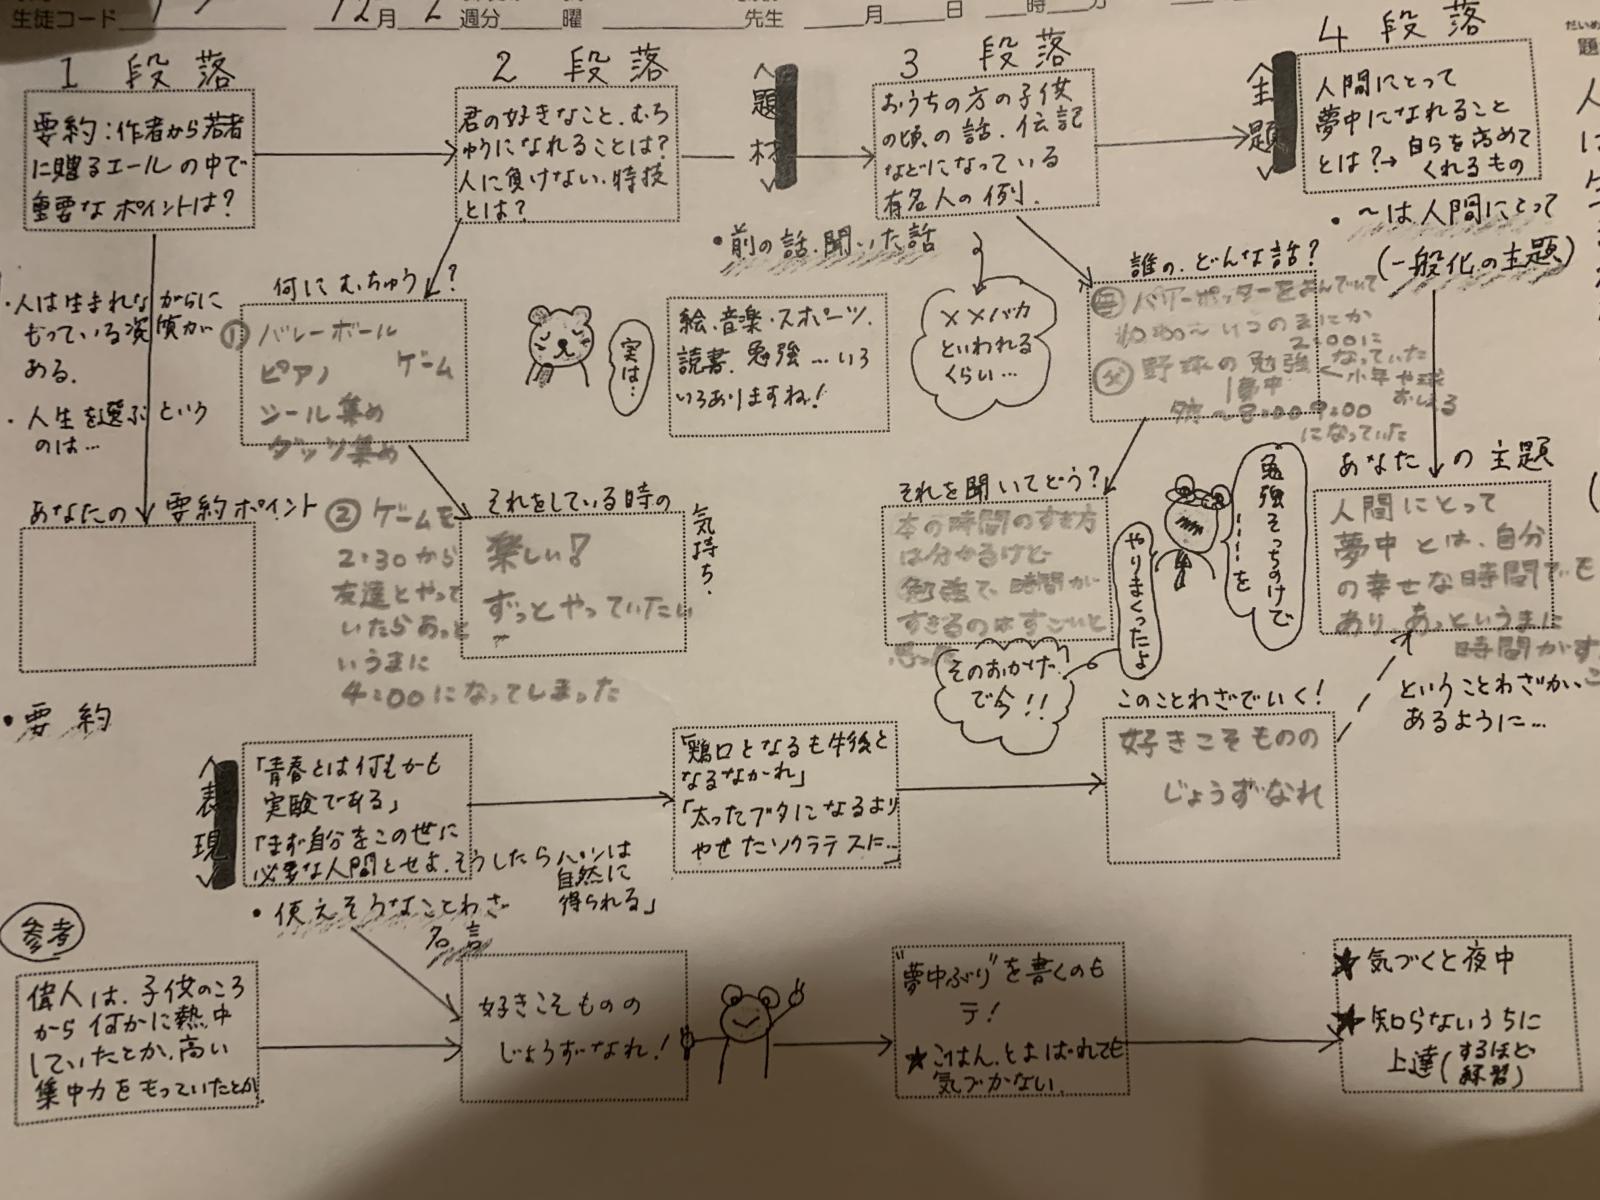 生徒コード
12月2週分 曜 先生 月 日 時 分
1 段落
要約:作者から若者
に贈るエールの中で
重要なポイントは?
・人は生まれながらに
もっている資質が
ある.
・人生を選ぶという
のは…
あなたの要約ポイント
・要約
2 段落
君の好きなこと、むち
ゅうになれることは?
人に負けない、特技
とは?
何にむちゅう?
① バレーボール
ピアノ ゲーム
シール集め
グッツ集め
② ゲームを
2:30から
友達とやって
いたらあっと
いうまに
4:00になってしまった
それをしている時の
気持ち.
楽しい!
ずっとやっていたい
〈題材〉
実は…
絵、音楽・スポーツ、
読書、勉強…いろ
いろありますね!
3 段落
おうちの方の子供
の頃、の話、伝記
などになっている
有名人の例.
・前の話、聞いた話
××バカ
といわれる
くらい…
誰の、どんな話?
母 ハリーポッターをよんでいて
いつのまにか
2:00に
なっていた
父 野球の勉強
夢中
少年や球
おしえる
8:00 9:00
になっていた
それを聞いてどう?
本の時間のすぎ方
は分かるけど
勉強で、時間が
すぎるのはすごいと
思った
勉強そっちのけで
……を
やりまくったよ
そのおかげ
で今!!
〈主題〉
4 段落
人間にとって
夢中になれること
とは?→ 自らを高めて
くれるもの
・〜は人間にとって
(一般化の主題)
あなたの主題
人間にとって
夢中とは、自分
の幸せな時間でも
あり、あっというまに
時間がす
ということわざが、こ
あるように…
〈表現〉
「青春とは何もかも
実験である」
「まず自分をこの世に
必要な人間とせよ、そうしたらパンは
自然に
得られる」
・使えそうなことわざ
名言
「鶏口となるも牛後と
なるなかれ」
「太ったブタになるより
やせたソクラテスに…」
このことわざでいく!
好きこそものの
じょうずなれ
参考
偉人は、子供のころ
から何かに熱中
していたとか、高い
集中力をもっていたとか.
好きこそものの
じょうずなれ!
"夢中ぶり"を書くのも
テ!
★ごはん、とよばれても
気づかない.
★気づくと夜中
★知らないうちに
上達(するほど
練習)
だいめ
題